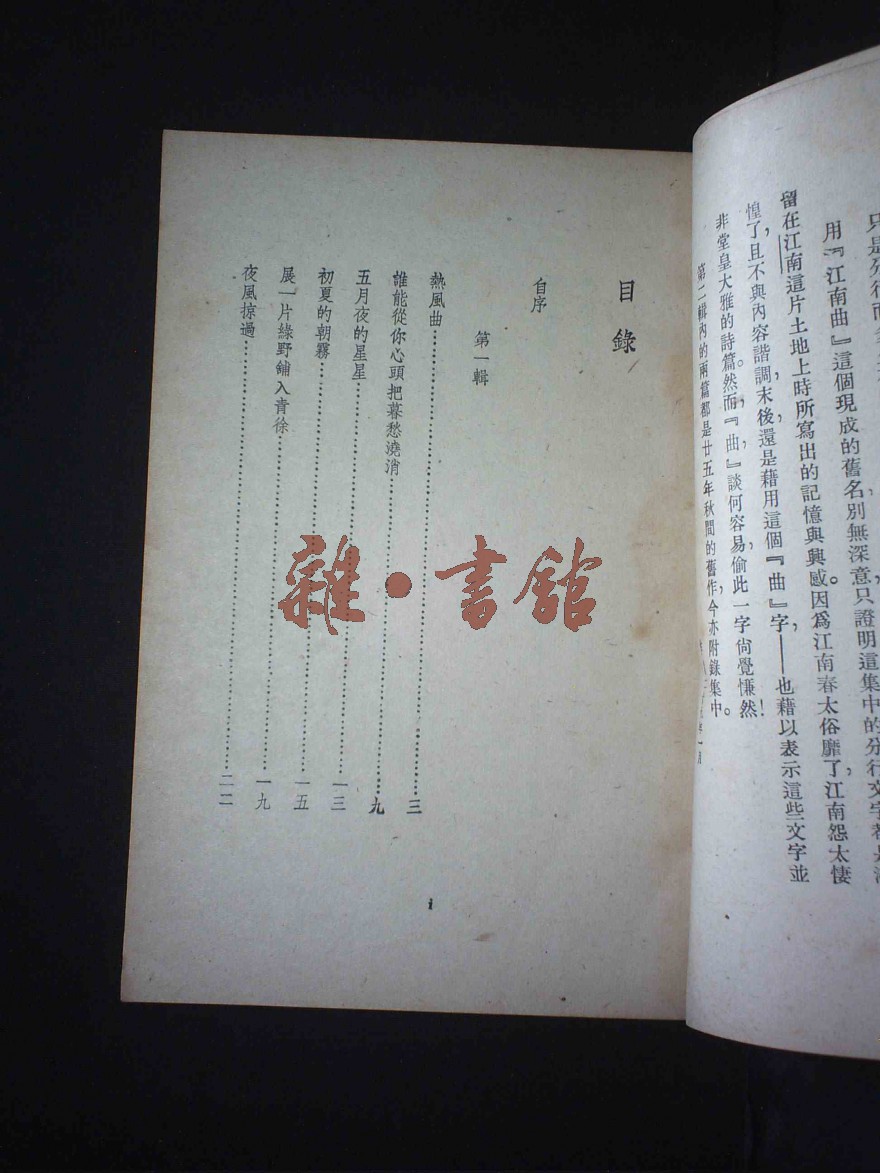 用『江南曲』這個現成的舊名別無深意，只證明這集中的分行文字都是
留在江南這片土地上時所寫出的記憶與興感。因爲江南春太俗靡了，江南怨太悽
惶了，且不與內容諧調，末後，還是藉用這個『曲』字，——也藉以表示這些文字並
非堂皇大雅的詩篇。然而，『曲』，談何容易，偷此一字，尙覺慊然！
第二輯內的兩篇都是廿五年秋間的舊作，今亦附錄集中。
目錄
自序
第一輯
熱風曲……三
誰能從你心頭把暮愁澆消……九
五月夜的星星……一三
初夏的朝霧……一五
展一片綠野鋪入青徐……一九
夜風掠過……二二
i
雜·書館